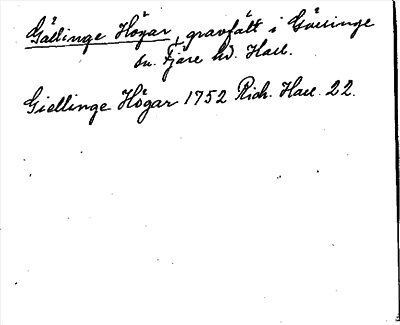 Gällinge Högar, gravfält i Gällinge
sn. Fjäre hd. Hall.
Giellinge Högar 1752 Rich. Hall. 22.